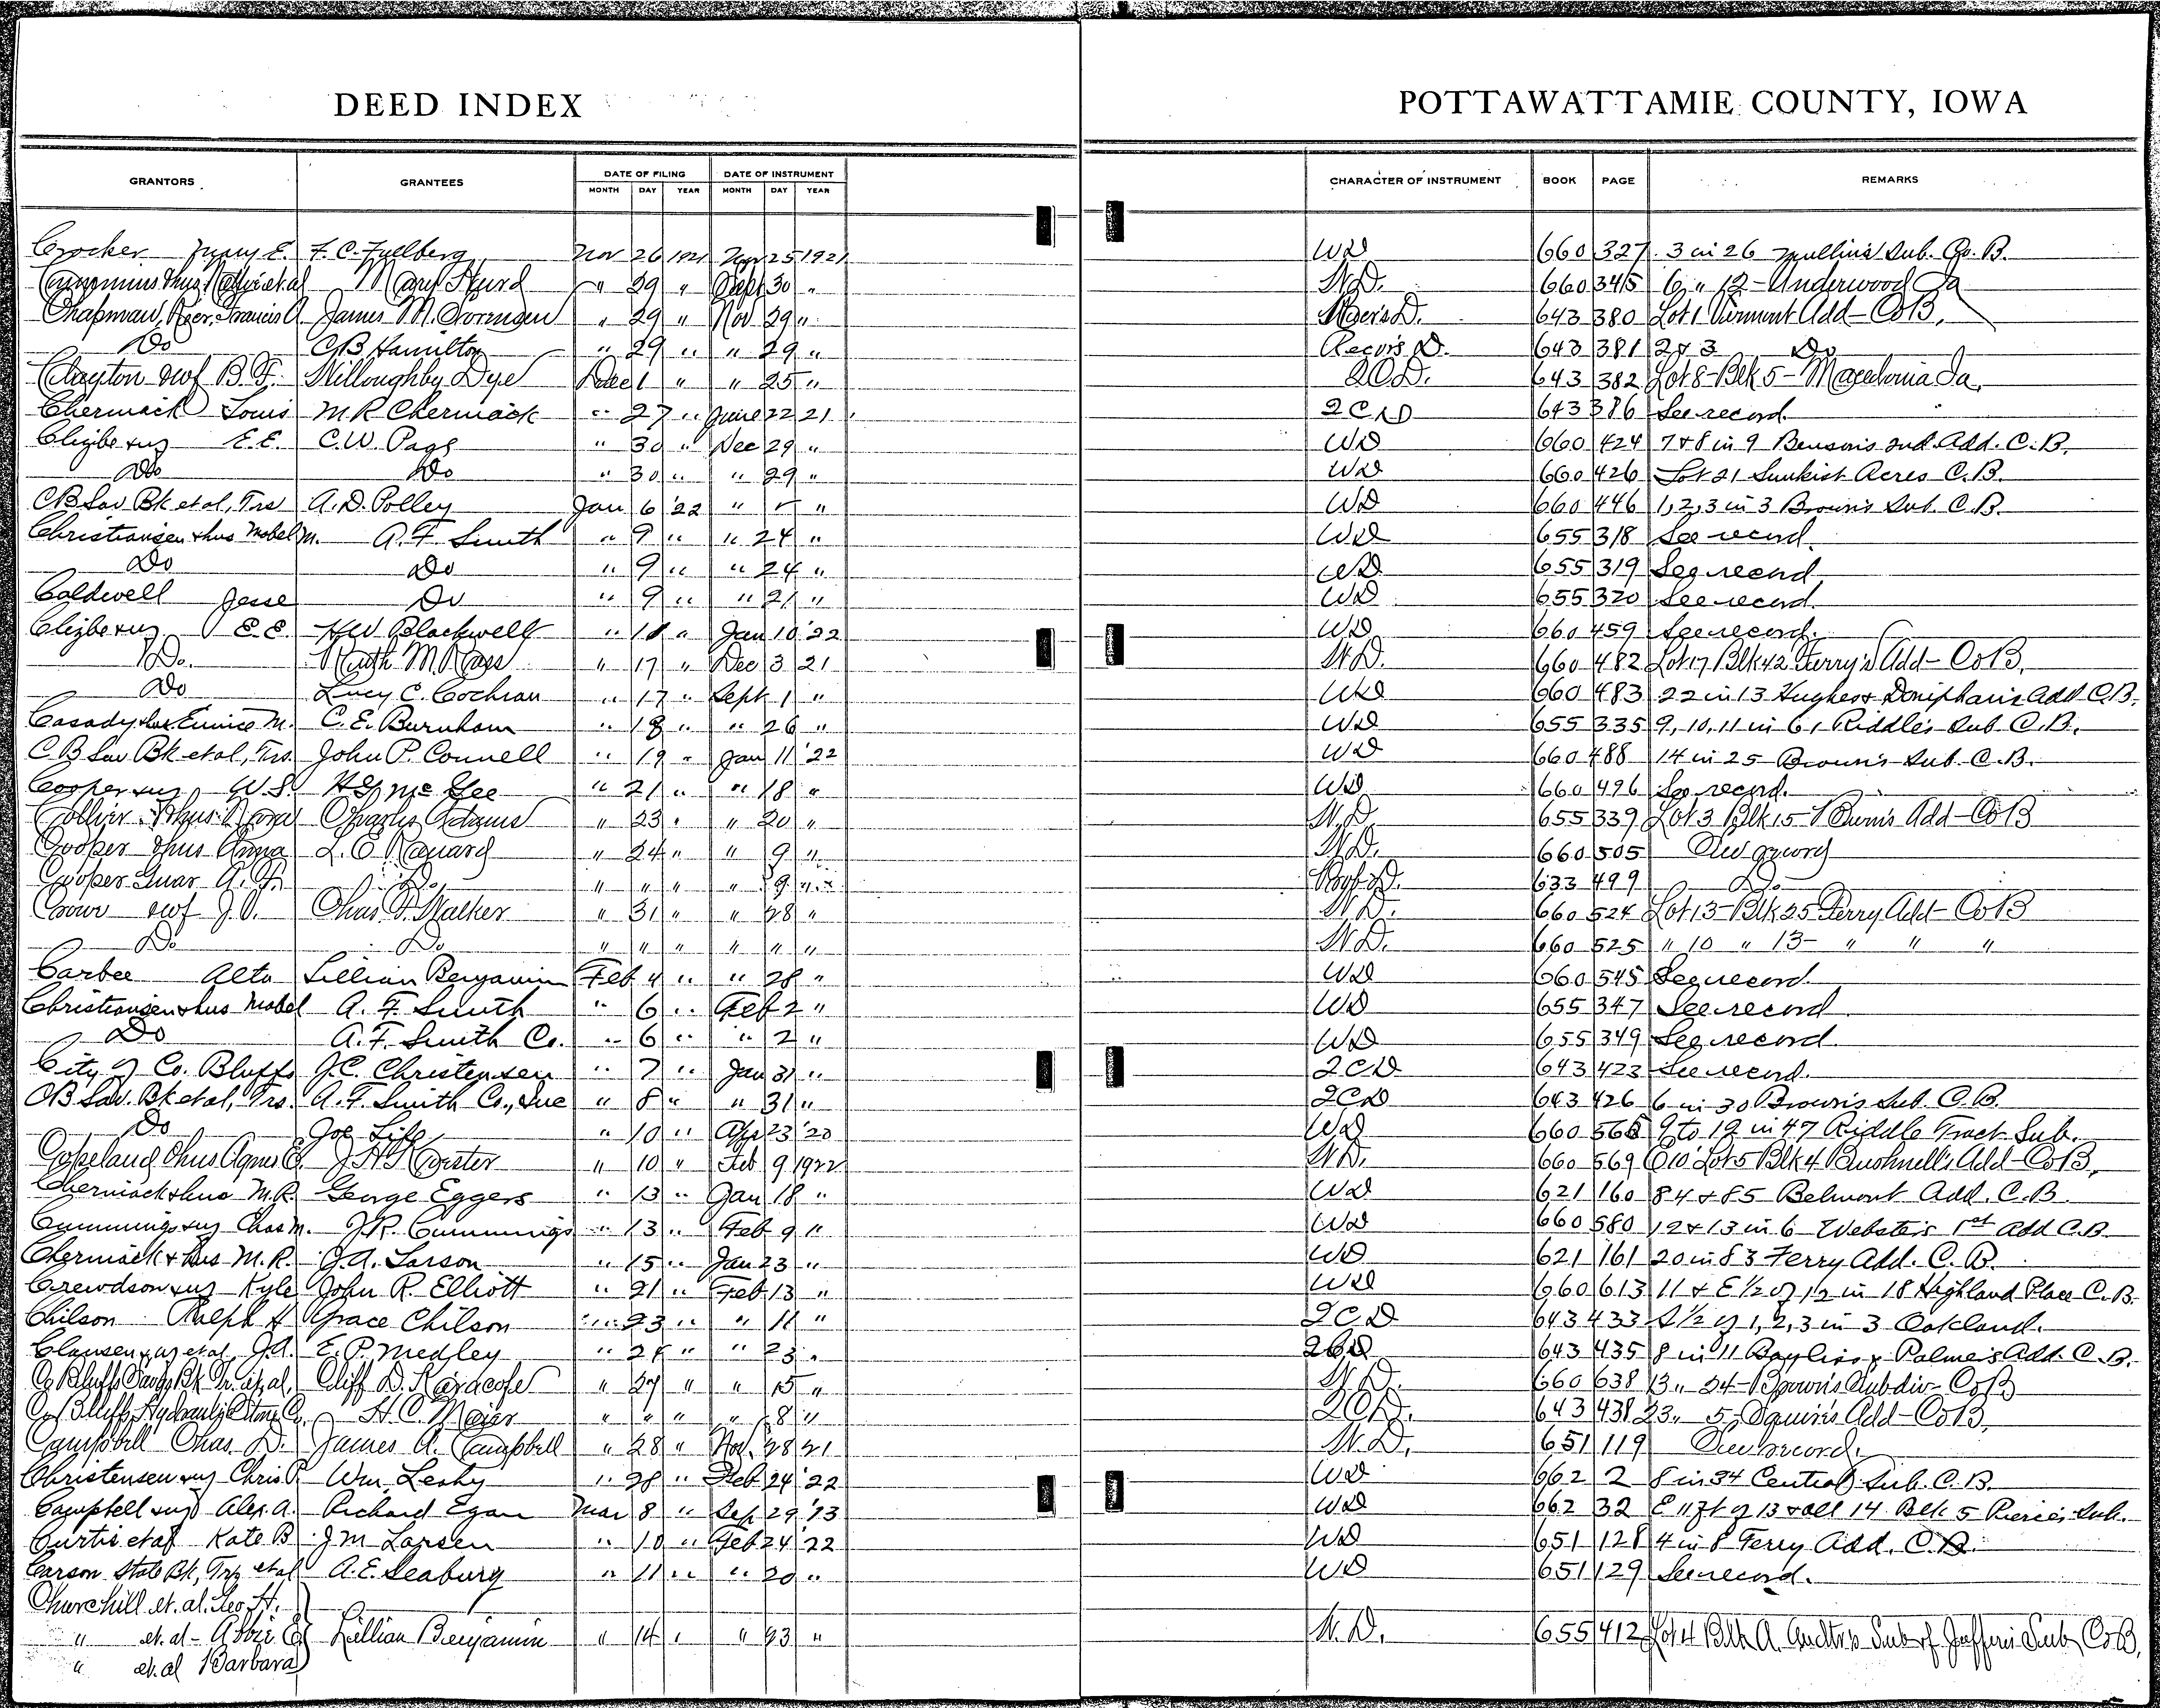 DEED INDEX
POTTAWATTAMIE COUNTY, IOWA
GRANTORS GRANTEES DATE OF FILING DATE OF INSTRUMENT CHARACTER OF INSTRUMENT BOOK PAGE REMARKS
MONTH DAY YEAR MONTH DAY YEAR
Crocker E. F. C. Nov 26 1921 25 1921 WD 660 327 3 in 26 Mullins Sub. Co. B.
Mary Hurd " 29 " Sept 30 " W.D. 660 345 6 " 12 - Underwood Ia
Chapman, Recr. Francis A. James M. Sorensen " 29 " Nov 29 " D. 643 380 Lot 1 Add - Co B.
Do C B Hamilton " 29 " " 29 " Recvr's D. 643 381 2 & 3 Do
Clayton & wf B. F. Willoughby Dye Dec 1 " " 25 " Q.C.D. 643 382 Lot 8 - Blk 5 - Macedonia Ia.
Chermack Louis M R Chermack " 27 " June 22 21 QCD 643 386 See record.
Clizbe & ux E. E. C. W. Page " 30 " Dec 29 " WD 660 424 7 & 8 in 9 Benson's 2nd. Add. C. B.
Do Do " 30 " " 29 " WD 660 426 Lot 21 Sunkist Acres C. B.
CB Sav Bk et al, Trs A. D. Polley Jan 6 '22 " " WD 660 446 1, 2, 3 in 3 Brown's Sub. C. B.
Christiansen & hus Mabel M. A. F. Smith " 9 " " 24 " WD 655 318 See record.
Do Do " 9 " " 24 " WD 655 319 See record
Caldwell Jesse Do " 9 " " 21 " WD 655 320 See record.
Clizbe & ux E. E. Blackwell " " Jan 10 '22 WD 660 459 See record.
Do. Ruth M " 17 " Dec 3 21 W.D. 660 482 Lot 17 Blk 42 Ferry's Add - Co B.
Do Lucy C. Cochran " 17 " Sept 1 " WD 660 483 22 in 13 Hughes & Doniphan's Add C. B.
Casady & hus Eunice M. C. E. Burnham " 18 " " 26 " WD 655 335 9, 10, 11 in 61 Riddle's Sub C. B.
C. B Sav Bk et al, Trs. John P. Connell " 19 " Jan 11 '22 WD 660 488 14 in 25 Brown's Sub. C. B.
Cooper & ux W. S. Mc Gee " 21 " " 18 " WD 660 496 See record.
Collier & hus Nora Charles Adams " 23 " " 20 " W.D. 655 339 Lot 3 Blk 15 Add - Co B
Cooper & hus Anna L. O. " 24 " " 9 " W.D. 660 505 See record
Cooper Guar Do " " " " 9 " D. 633 499 Do
& wf J. O. Chas. Walker " 31 " " 28 " W.D. 660 524 Lot 13 - Blk 25 Ferry Add - Co B
Do Do " " " " " " W.D. 660 525 " 10 " 13 - " " "
Carbee Alta Lillian Benjamin Feb 4 " " 28 " WD 660 545 See record.
Christiansen & hus Mabel A. F. Smith " 6 " Feb 2 " WD 655 347 See record
Do A. F. Smith Co. " 6 " " 2 " WD 655 349 See record.
City of Co. Bluffs J. C. Christensen " 7 " Jan 31 " QCD 643 423 See record.
CB Sav. Bk et al, Trs. A. F. Smith Co., Inc " 8 " " 31 " QCD 643 426 6 in 30 Brown's Sub. C. B.
Do Joe " 10 " Apr 23 '20 WD 660 9 to 12 in 47 Riddle Tract Sub.
Copeland & hus Agnes " 10 " Feb 9 1922 W.D. 660 569 Lot 5 Blk 4 Bushnell's Add - Co B.
Chermack & hus M. R. George Eggers " 13 " Jan 18 " WD 621 160 84 & 85 Belmont Add. C. B.
Cummings & ux Chas M. J. R. Cummings " 13 " Feb 9 " WD 660 580 12 & 13 in 6 Webster's 1st Add C. B
Chermack & hus M. R. J. A. Larson " 15 " Jan 23 " WD 621 161 20 in 83 Ferry Add. C. B.
Crewdson & ux Kyle John R. Elliott " 21 " Feb 13 " WD 660 613 11 & E 1/2 of 12 in 18 Highland Place C. B.
Chilson Ralph H Grace Chilson " 23 " " 11 " QCD 643 433 1/2 of 1, 2, 3 in 3 Oakland.
Clausen & ux et al J. A. E. P. Medley " " " 23 " QCD 643 435 8 in 11 Bayliss & Palmer's Add. C. B.
Co Bluffs Savgs Bk Tr. et al. Cliff D. " 27 " " 15 " W.D. 660 638 13 " 24 - Brown's Subdiv - Co B
Co Bluffs Hydraulic Stone Co. H. C. Meier " " " " 8 " Q.C.D. 643 438 23 " 5 - Squire's Add - Co B.
Campbell Chas. D. James A. Campbell " 28 " Nov. 28 21 W.D. 651 119 See record.
Christensen & ux Chris P. Wm. Leahy " 28 " Feb 24 '22 WD 662 2 8 in 34 Central Sub. C. B.
Campbell & ux Alex. A. Richard Egan Mar 8 " Sep 29 '13 WD 662 32 E 11 ft of 13 & all 14 Blk 5 Pierce's Sub.
Curtis et al Kate B J. M Larsen " 10 " Feb 24 '22 WD 651 128 4 in 8 Ferry Add. C. B.
Carson State Bk, Trs et al A. E. Seaburg " 11 " " 20 " WD 651 129 See record.
Churchill et. al. Leo H.
" et. al - Abbie E Lillian Benjamin " 14 " " 23 " W.D. 655 412 Lot 4 Blk A. Sub of Jefferis Sub Co B.
" et. al Barbara